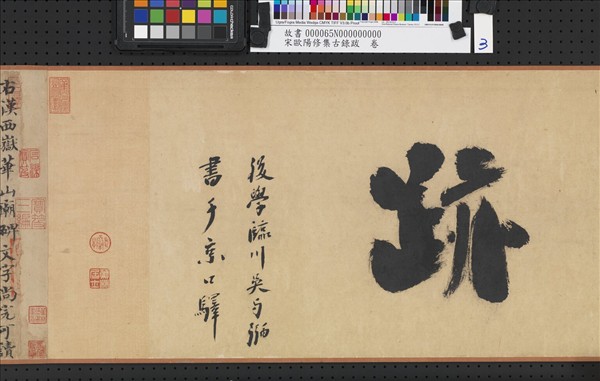 故書 000065N000000000
宋歐陽修集古錄跋 卷
3
跡
後學臨川吳与弼
書于京口驛
右漢西嶽華山廟碑文字尚完可讀